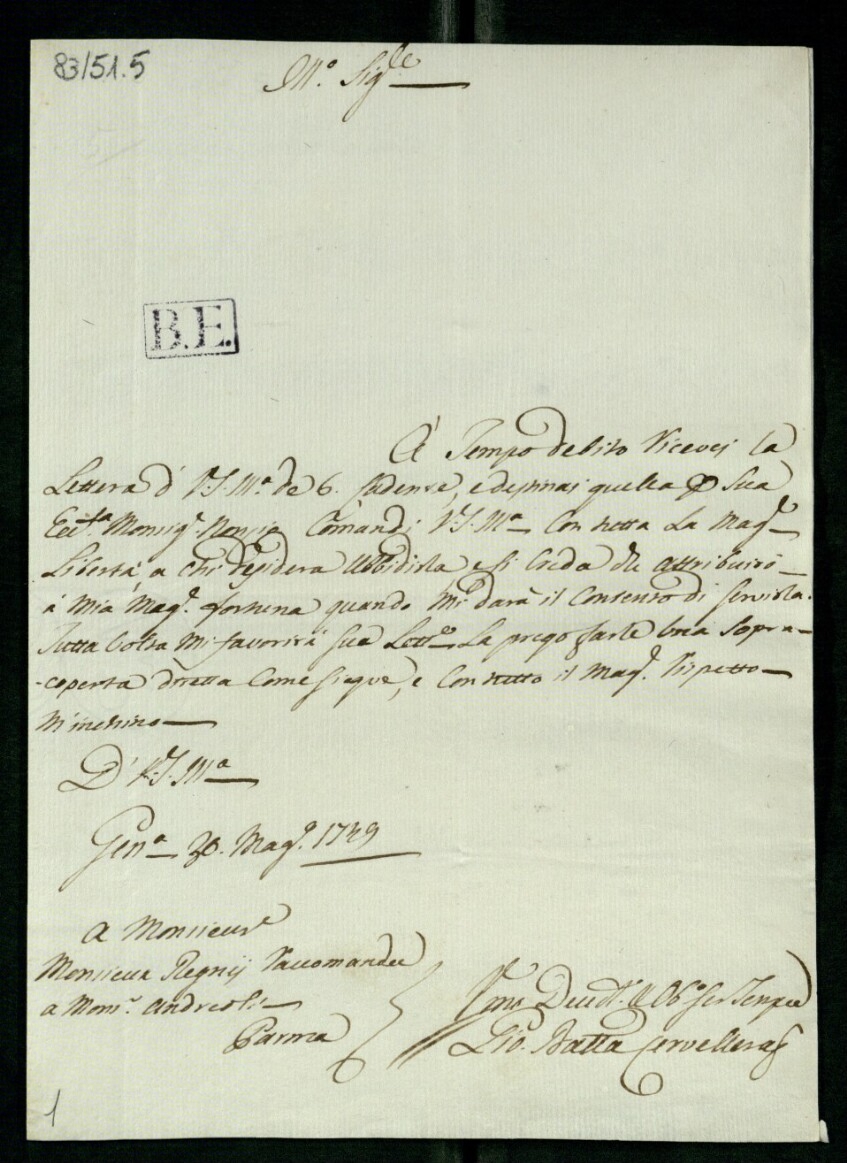 83/51.5
Ill.o Sig.re
B.E.
A' Tempo debito Ricevei la
Lettera d' V.S. Ill.a de 6. Cadente, e destinai quella p Sua
Ecc.za Monsig.r Comandi V.S. Ill.a Con tutta La Magg.r
Libertà, a chi desidera Ubbidirla e si Creda che attribuirò
à mia Magg.r fortuna quando Mi darà il Consenso di Servirla.
Tutta volta Mi favorirà Sua Lett.a La prego farle una Sopra-
-coperta diretta Come Siegue, e Con tutto il Magg.r Rispetto
M'inchino
D' V.S. Ill.a
Gen.a Magg.o 1749
A Monsieur
Monsieur Regnÿ Raccomandée
a Mons.r Andreoli
Parma
Ser Tempre
Gio. Batta Cervelleras
1